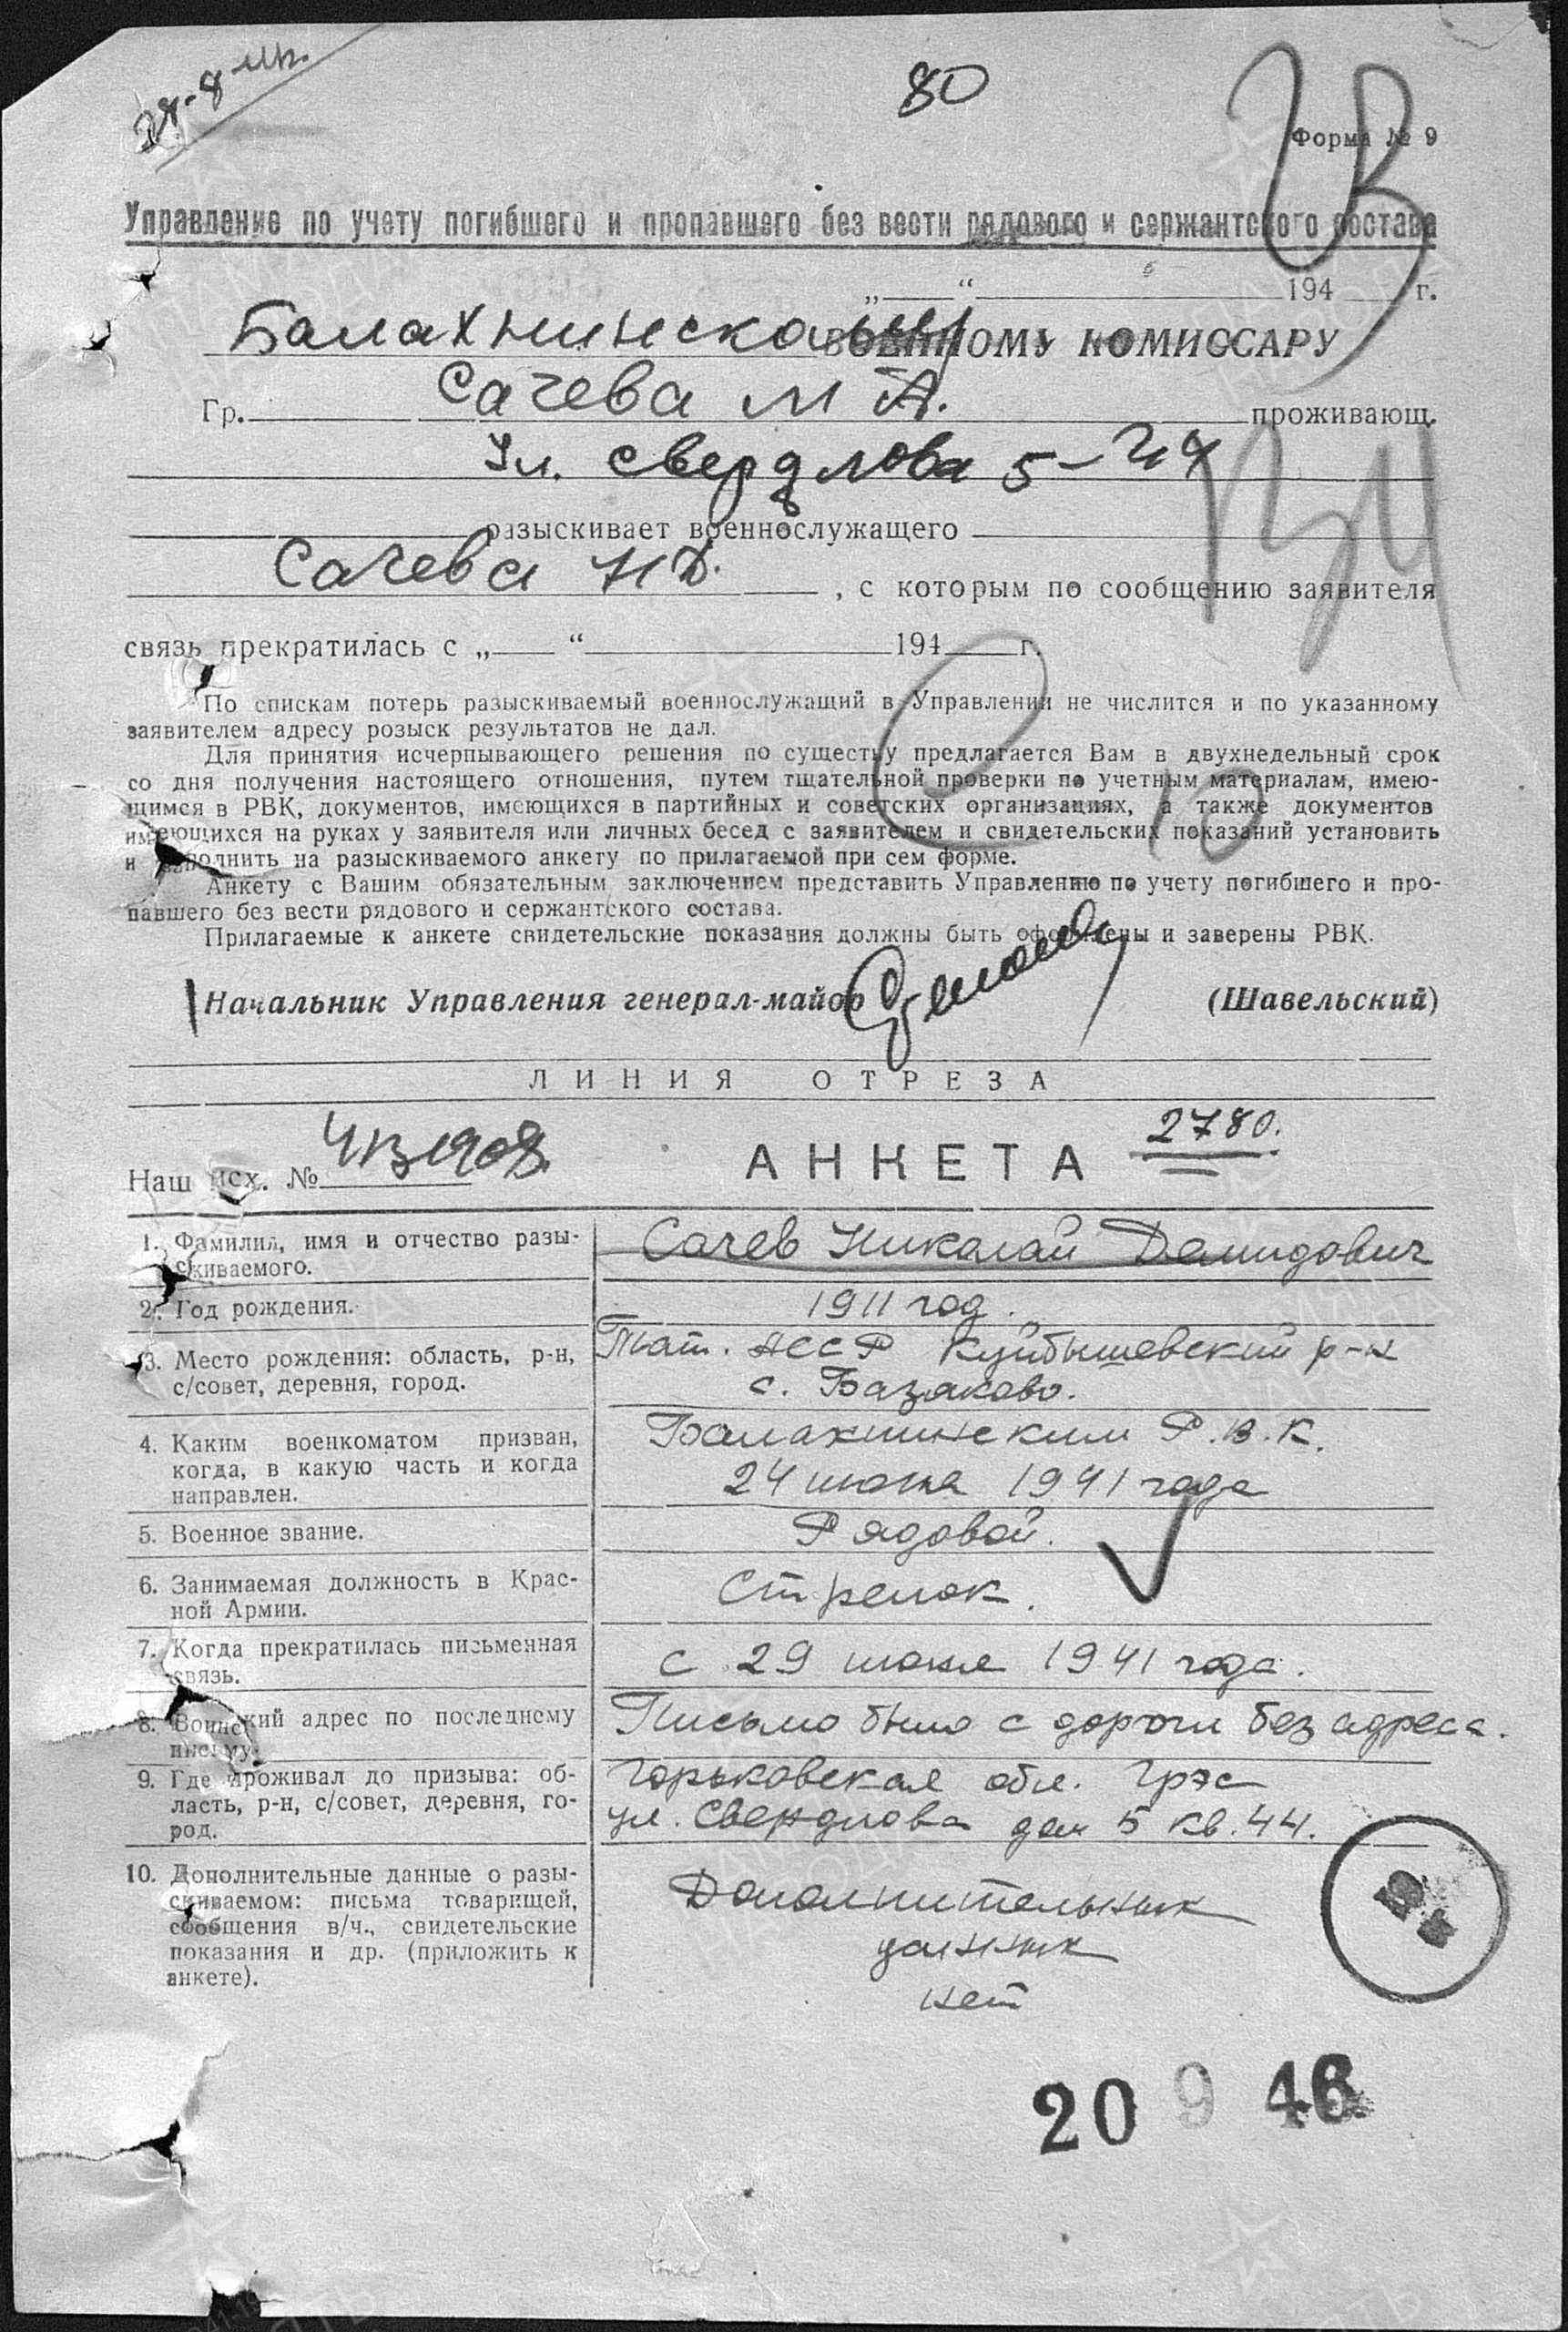 80
Форма № 9
Управление по учету погибшего и пропавшего без вести рядового и сержантского состава
„ “ 194 г.
Балахнинскому ВОЕННОМУ КОМИССАРУ
Гр. Сачева М А. проживающ.
Ул. Свердлова 5-44
разыскивает военнослужащего
Сачева Н Д. , с которым по сообщению заявителя
связь прекратилась с „ “ 194 г.
По спискам потерь разыскиваемый военнослужащий в Управлении не числится и по указанному
заявителем адресу розыск результатов не дал.
Для принятия исчерпывающего решения по существу предлагается Вам в двухнедельный срок
со дня получения настоящего отношения, путем тщательной проверки по учетным материалам, имею-
щимся в РВК, документов, имеющихся в партийных и советских организациях, а также документов
имеющихся на руках у заявителя или личных бесед с заявителем и свидетельских показаний установить
и заполнить на разыскиваемого анкету по прилагаемой при сем форме.
Анкету с Вашим обязательным заключением представить Управлению по учету погибшего и про-
павшего без вести рядового и сержантского состава.
Прилагаемые к анкете свидетельские показания должны быть оформлены и заверены РВК.
Начальник Управления генерал-майор (Шавельский)
ЛИНИЯ ОТРЕЗА
Наш исх. № АНКЕТА 2780.
1. Фамилия, имя и отчество разы-
скиваемого.
Сачев Николай Демидович
2. Год рождения.
1911 год.
3. Место рождения: область, р-н,
с/совет, деревня, город.
Тат. АССР Куйбышевский р-н
с. Базяково.
4. Каким военкоматом призван,
когда, в какую часть и когда
направлен.
Балахнинским Р.В.К.
24 июня 1941 года
5. Военное звание.
Рядовой.
6. Занимаемая должность в Крас-
ной Армии.
Стрелок.
7. Когда прекратилась письменная
связь.
с 29 июня 1941 года.
8. Воинский адрес по последнему
письму.
Письмо было с дороги без адреса.
9. Где проживал до призыва: об-
ласть, р-н, с/совет, деревня, го-
род.
Горьковская обл. Грэс
ул. Свердлова дом 5 кв. 44.
10. Дополнительные данные о разы-
скиваемом: письма товарищей,
сообщения в/ч., свидетельские
показания и др. (приложить к
анкете).
Дополнительных
данных
нет
20 9 46